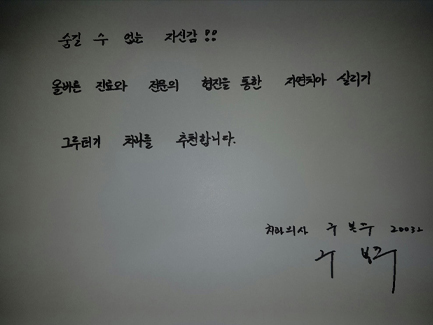 숨길 수 없는 자신감!!
올바른 진료와 전문의 협진을 통한 자연치아 살리기
그루터기 치과를 추천합니다.
치과의사 구 본 주 20032